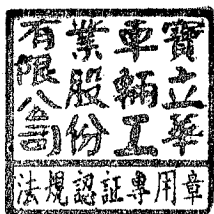 寶立華
車輛工
業股份
有限公司
法規認証專用章